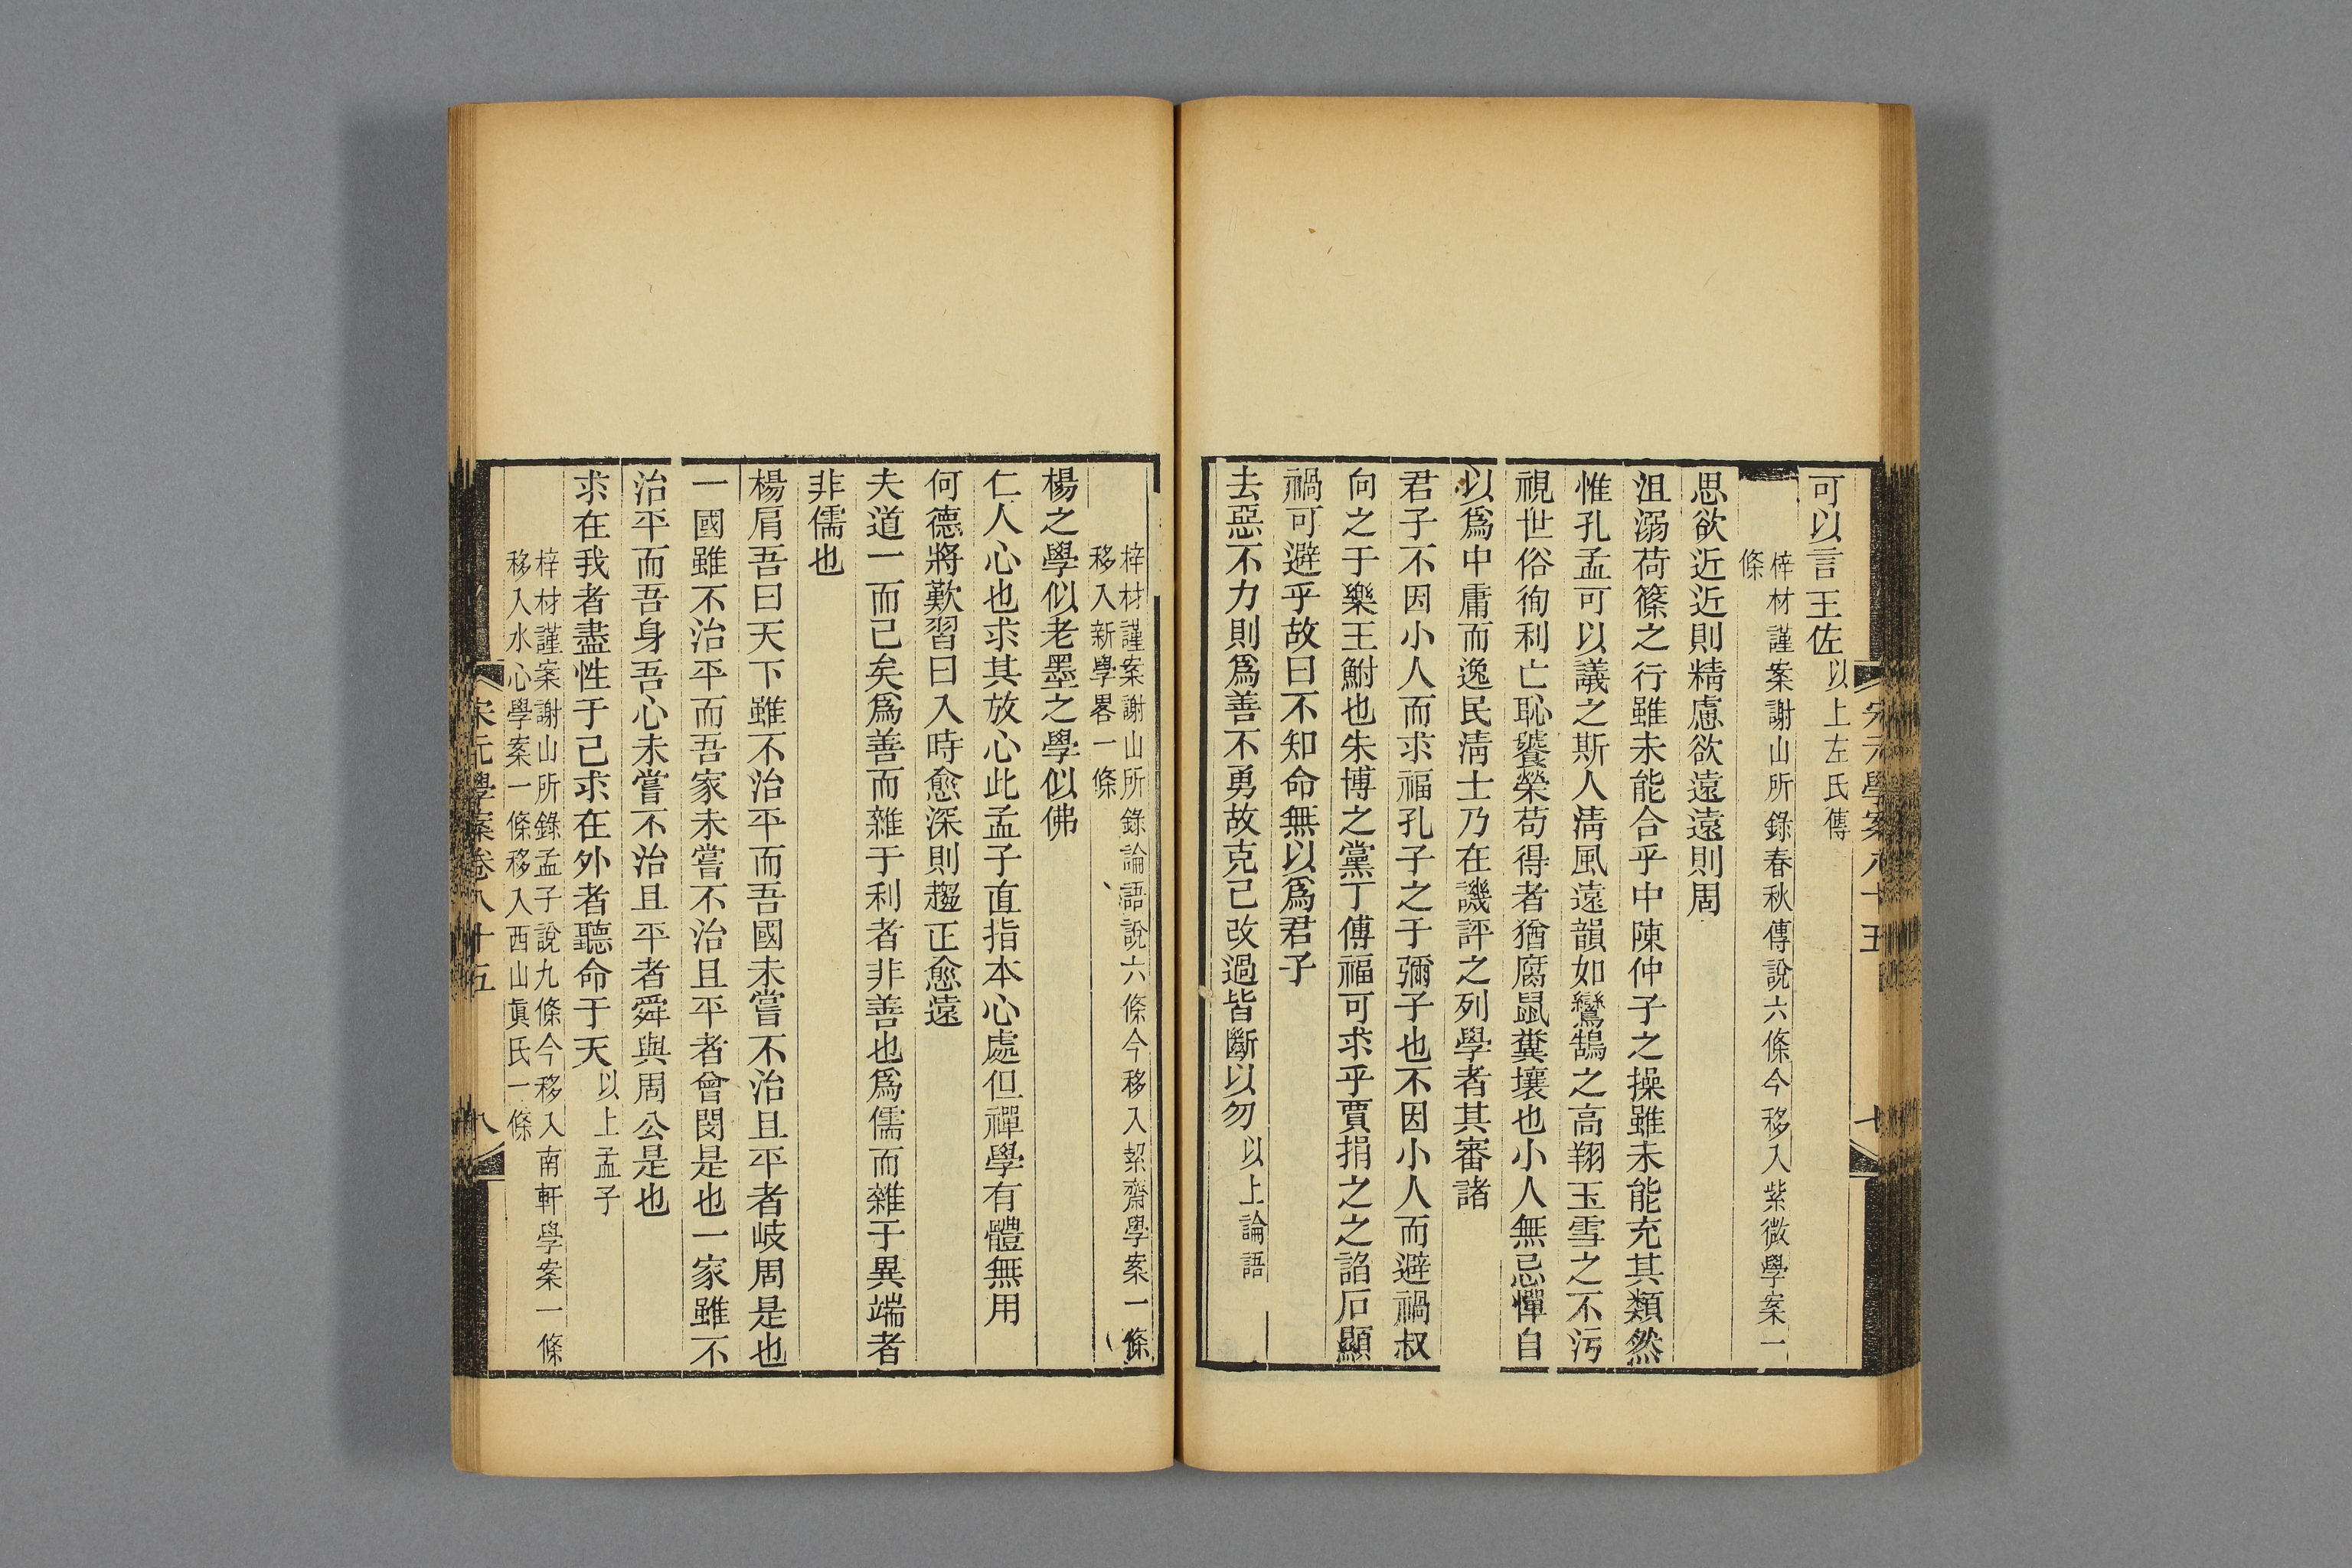 宋元學案卷八十五
七
可以言王佐以上左氏傳
梓材謹案謝山所錄春秋傳說六條今移入紫微學案一
條
思欲近近則精慮欲遠遠則周
沮溺荷篠之行雖未能合乎中陳仲子之操雖未能充其類然
惟孔孟可以議之斯人淸風遠韻如鸞鵠之高翔玉雪之不污
視世俗徇利亡恥饕榮苟得者猶腐鼠糞壤也小人無忌憚自
以爲中庸而逸民淸士乃在譏評之列學者其審諸
君子不因小人而求福孔子之于彌子也不因小人而避禍叔
向之于樂王鮒也朱博之黨丁傅福可求乎賈捐之之諂石顯
禍可避乎故曰不知命無以爲君子
去惡不力則爲善不勇故克己改過皆斷以勿以上論語
梓材謹案謝山所錄論語說六條今移入絜齋學案一條
移入新學畧一條
楊之學似老墨之學似佛
仁人心也求其放心此孟子直指本心處但禪學有體無用
何德將歎習曰入時愈深則趨正愈遠
夫道一而已矣爲善而雜于利者非善也爲儒而雜于異端者
非儒也
楊肩吾曰天下雖不治平而吾國未嘗不治且平者岐周是也
一國雖不治平而吾家未嘗不治且平者曾閔是也一家雖不
治平而吾身吾心未嘗不治且平者舜與周公是也
求在我者盡性于己求在外者聽命于天以上孟子
梓材謹案謝山所錄孟子說九條今移入南軒學案一條
移入水心學案一條移入西山眞氏一條
宋元學案卷八十五
八